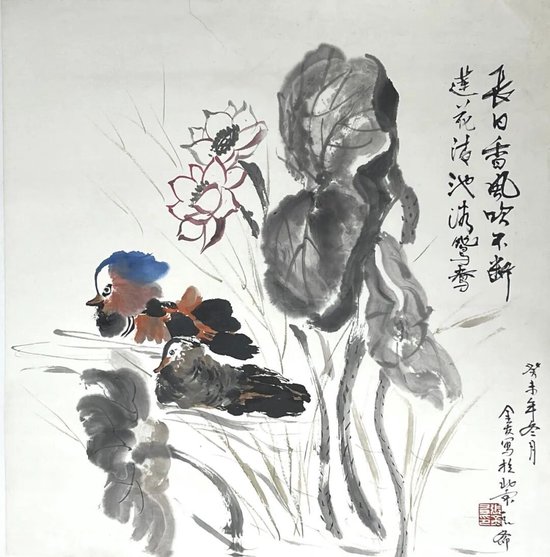 長日香風吹不斷
蓮花清池浴鴛鴦
癸未年冬月
金友寫於北京